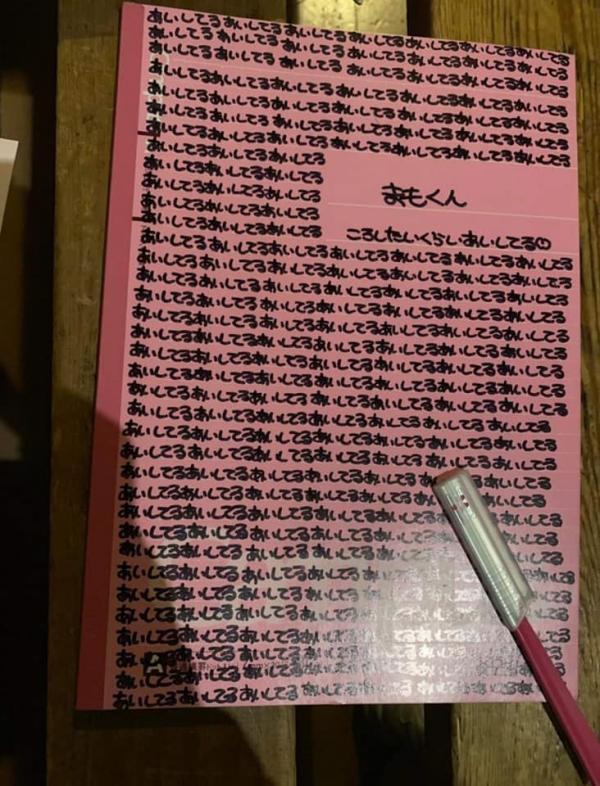 あいしてるあいしてるあいしてるあいしてるあいしてるあいしてるあいしてる
あいしてるあいしてるあいしてるあいしてるあいしてるあいしてるあいしてる
あいしてるあいしてるあいしてるあいしてるあいしてるあいしてるあいしてる
あいしてるあいしてるあいしてるあいしてるあいしてるあいしてるあいしてる
あいしてるあいしてるあいしてるあいしてるあいしてるあいしてるあいしてる
あいしてるあいしてるあいしてるあいしてるあいしてるあいしてるあいしてる
あいしてるあいしてるあいしてるあいしてるあいしてるあいしてるあいしてる
あいしてるあいしてるあいしてる
あいしてるあいしてるあいしてる
あいしてるあいしてるあいしてる
あいしてるあいしてるあいしてる
あいしてるあいしてるあいしてる
まもくん
ころしたいくらいあいしてる
あいしてるあいしてるあいしてるあいしてるあいしてるあいしてるあいしてる
あいしてるあいしてるあいしてるあいしてるあいしてるあいしてるあいしてる
あいしてるあいしてるあいしてるあいしてるあいしてるあいしてるあいしてる
あいしてるあいしてるあいしてるあいしてるあいしてるあいしてるあいしてる
あいしてるあいしてるあいしてるあいしてるあいしてるあいしてるあいしてる
あいしてるあいしてるあいしてるあいしてるあいしてるあいしてるあいしてる
あいしてるあいしてるあいしてるあいしてるあいしてるあいしてるあいしてる
あいしてるあいしてるあいしてるあいしてるあいしてるあいしてるあいしてる
あいしてるあいしてるあいしてるあいしてるあいしてるあいしてるあいしてる
あいしてるあいしてるあいしてるあいしてるあいしてるあいしてるあいしてる
あいしてるあいしてるあいしてるあいしてるあいしてるあいしてるあいしてる
あいしてるあいしてるあいしてるあいしてるあいしてるあいしてるあいしてる
あいしてるあいしてるあいしてるあいしてるあいしてるあいしてる
あいしてるあいしてるあいしてるあいしてるあいしてる
あいしてるあいしてるあいしてるあいしてるあいしてる
あいしてるあいしてるあいしてるあいしてるあいしてる
あいしてるあいしてるあいしてるあいしてるあいしてる
あいしてるあいしてるあいしてるあいしてる
あいしてるあいしてるあいしてるあいしてる
あいしてるあいしてるあいしてるあいしてる
あいしてるあいしてるあいしてる
あいしてるあいしてる
あいしてるあいしてるあいしてる
あいしてるあいしてるあいしてる